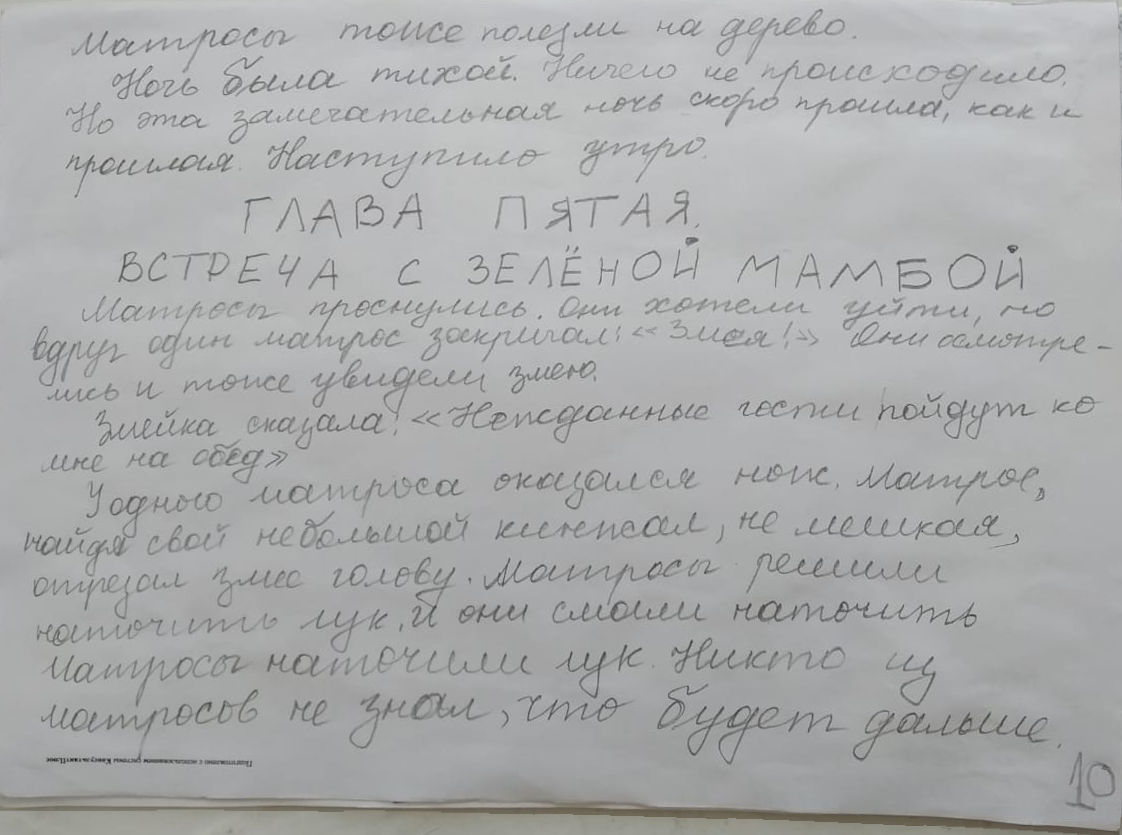 Матросы тоже полезли на дерево.
Ночь была тихой. Ничего не происходило.
Но эта замечательная ночь скоро прошла, как и
прошлая. Наступило утро.
ГЛАВА ПЯТАЯ.
ВСТРЕЧА С ЗЕЛЁНОЙ МАМБОЙ
Матросы проснулись. Они хотели уйти, но
вдруг один матрос закричал: «Змея!» Они осмотре-
лись и тоже увидели змею.
Змейка сказала: «Нежданные гости пойдут ко
мне на обед»
У одного матроса оказался нож. Матрос,
найдя свой небольшой кинжал, не мешкая,
отрезал змее голову. Матросы решили
наточить лук. И они смогли наточить
Матросы наточили лук. Никто из
матросов не знал, что будет дальше.
Подготовлено с использованием системы КонсультантПлюс
10